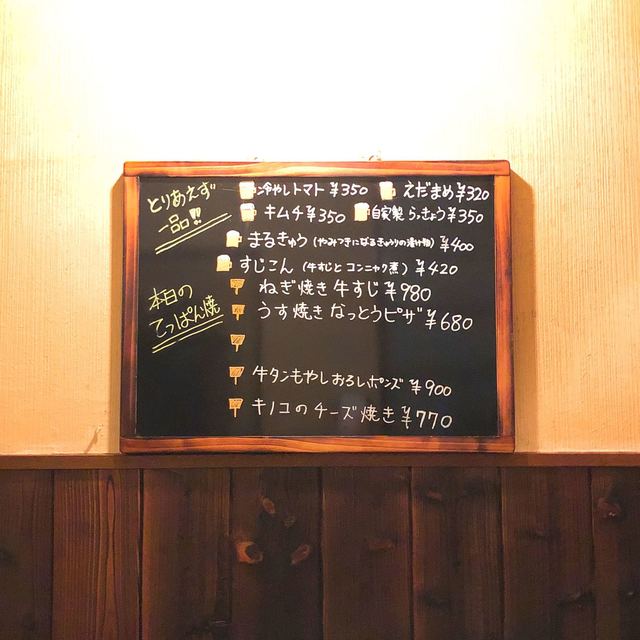 とりあえず
一品!!
冷やしトマト ¥350 えだまめ ¥320
キムチ ¥350 自家製 らっきょう ¥350
まるきゅう (やみつきになるきゅうりの漬け物) ¥400
すじこん (牛すじと コンニャク煮) ¥420
本日の
てっぱん焼
ねぎ焼き 牛すじ ¥980
うす焼き なっとうピザ ¥680
牛タンもやしおろしポンズ ¥900
キノコのチーズ焼き ¥770